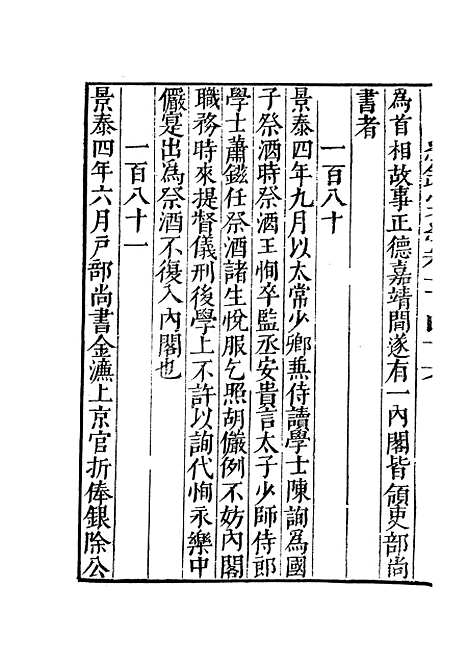 為首相故事正德嘉靖間遂有一內閣皆領吏部尚
書者
一百八十
景泰四年九月以太常少卿兼侍讀學士陳詢為國
子祭酒時祭酒王恂卒監丞安貴言太子少師侍郎
學士蕭鎡任祭酒諸生悅服乞照胡儼例不妨內閣
職務時來提督儀刑後學上不許以詢代恂永樂中
儼寔出為祭酒不復入內閣也
一百八十一
景泰四年六月戶部尚書金濂上京官折俸銀除公